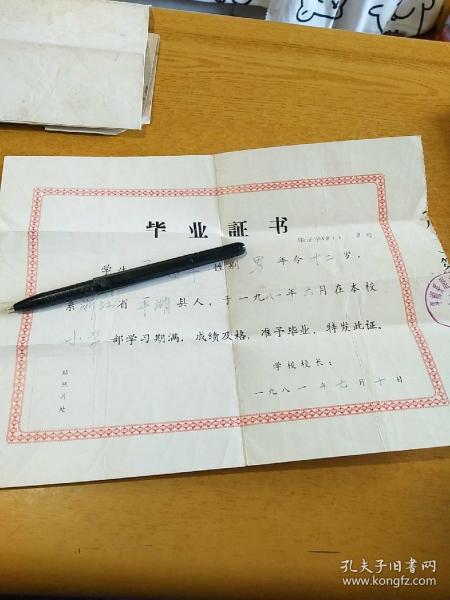 毕业証书
学生 性别 男 年令十二岁，
系浙江省平湖县人，于一九八一年六月在本校
小学部学习期满，成绩及格，准予毕业，特发此证。
学校校长：
贴照片处
一九八一年七月十日
孔夫子旧书网
www.kongfz.com